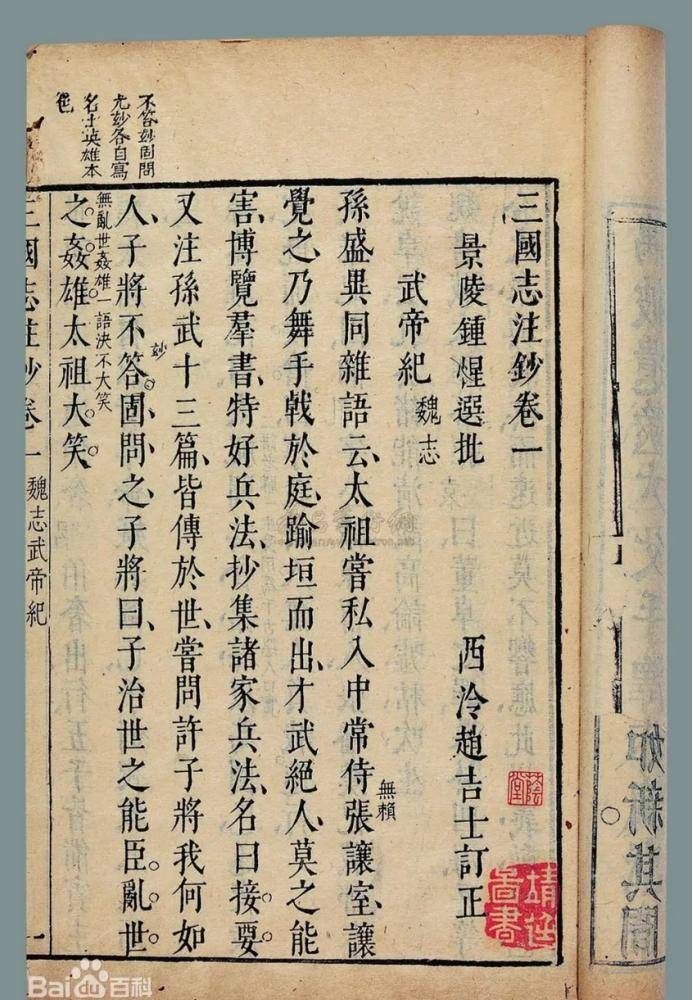 如新其間
不答妙固問
尤妙各自寫
名士英雄本
色
三國志注鈔卷一
景陵鍾惺選批 西泠趙吉士訂正
蔭堂
圖書
武帝紀 魏志
孫盛異同雜語云、太祖嘗私入中常侍張讓室、讓
無賴
覺之、乃舞手戟於庭、踰垣而出、才武絕人、莫之能
害、博覽羣書、特好兵法、抄集諸家兵法、名曰接要
又注孫武十三篇、皆傳於世、嘗問許子將、我何如
人、子將不答、固問之、子將曰、子治世之能臣、亂世
妙
之姦雄、太祖大笑
無亂世姦雄一語決不大笑
三國志注鈔卷一 魏志武帝紀 一
Bai百科